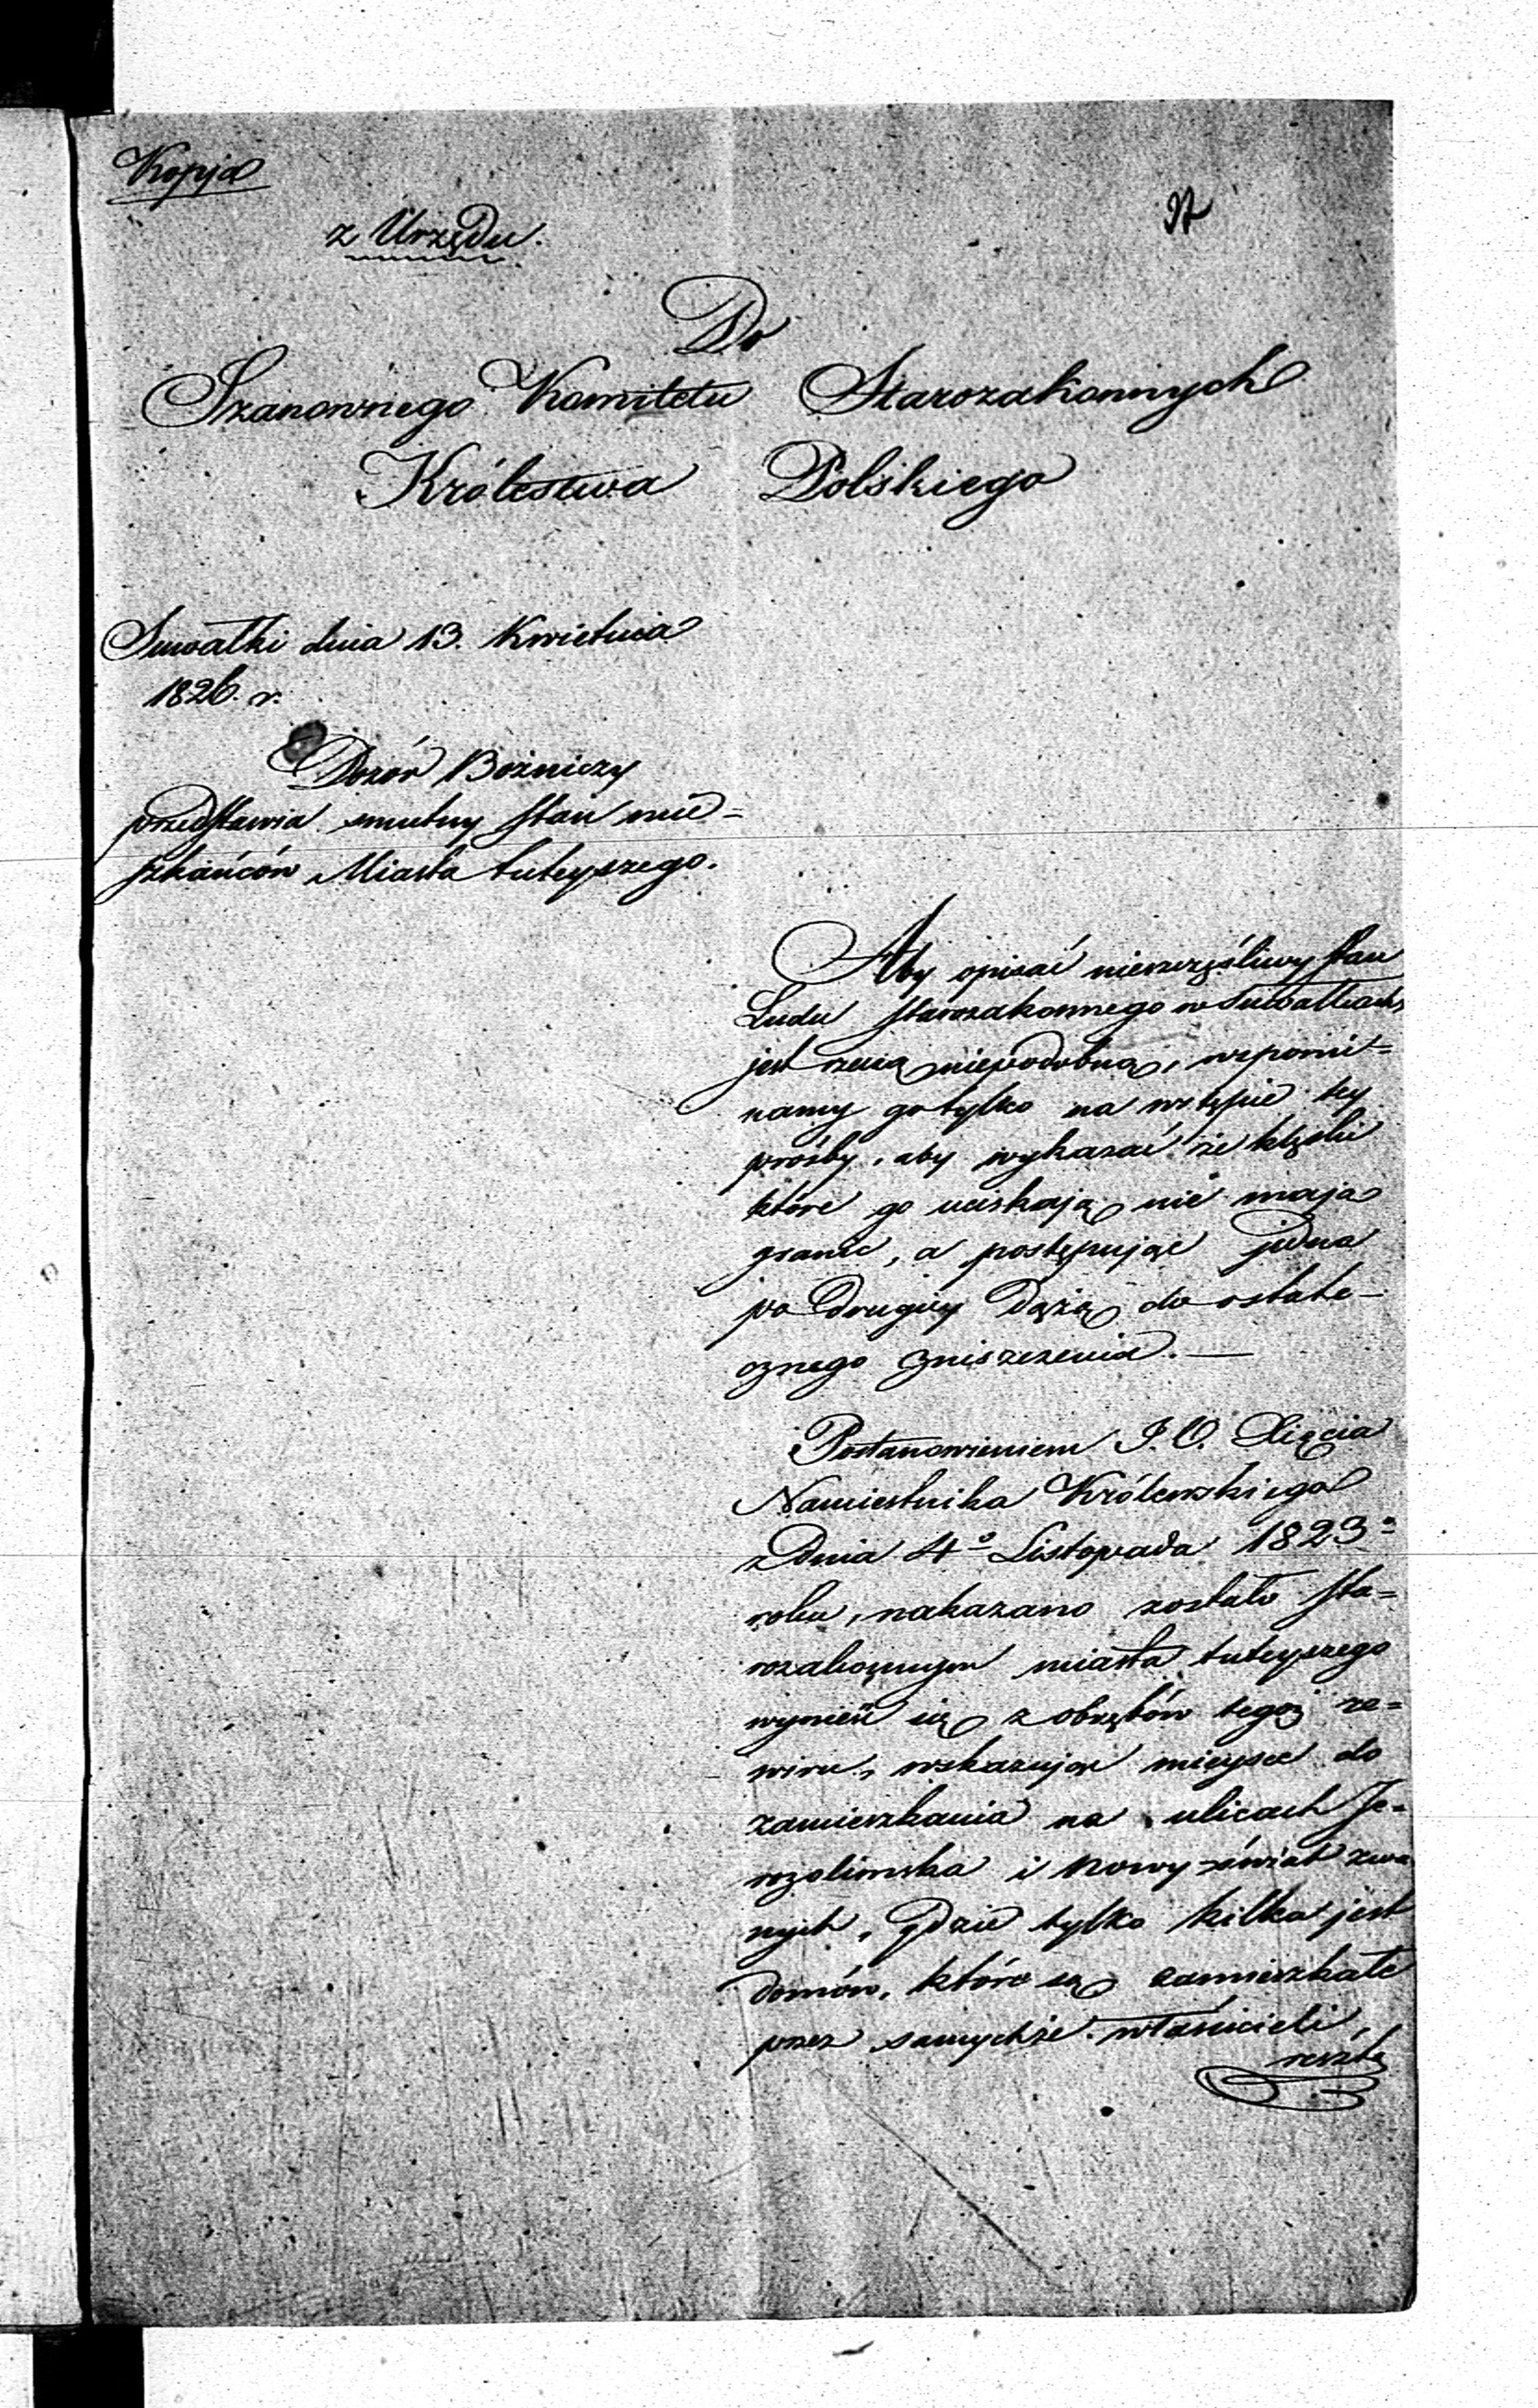 Kopja
z Urzędu.
Do
Szanownego Komitetu Starozakonnych
Królestwa Polskiego
Suwałki dnia 13. Kwietnia
1826. r.
Dozór Bożniczy
przedstawia smutny stan mie=
szkańców Miasta tuteyszego.
Aby opisać nieszczęśliwy stan
Ludu starozakonnego w Suwałkach
jest rzeczą niepodobną, wspomi=
namy go tylko na wstępie tey
prośby, aby wykazać że klęski
które go uciskają nie mają
granic, a postępując jedna
po drugiey dążą do ostate-
cznego zniszczenia. —
Postanowieniem J. O. Xięcia
Namiestnika Królewskiego
z dnia 4º Listopada 1823º
roku, nakazano zostało sta=
rozakonnym miasta tuteyszego
wynieść się z obrębów tegoż re=
wiru, wskazując mieysce do
zamieszkania na ulicach Je=
rozolimska i Nowy-świat zwa
nych, gdzie tylko kilka jest
domów, które są zamieszkałe
przez samychże właścicieli,
resztę